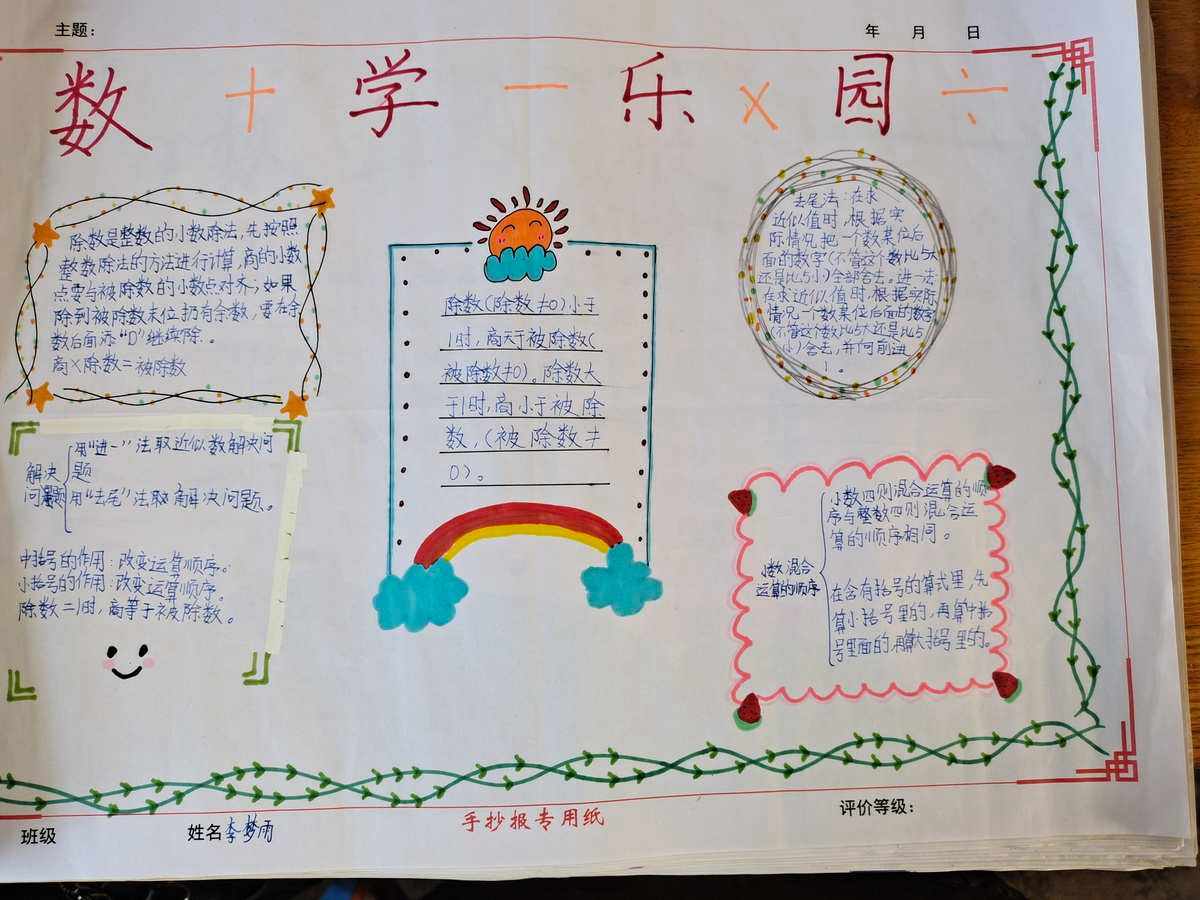 主题：
年 月 日
数 + 学 - 乐 × 园 ÷
除数是整数的小数除法，先按照
整数除法的方法进行计算，商的小数
点要与被除数的小数点对齐；如果
除到被除数末位扔有余数，要在余
数后面添“0”继续除。
商×除数=被除数
解决
问题
用“进一”法取近似数解决问
题
用“去尾”法取解决问题。
中括号的作用：改变运算顺序。
小括号的作用：改变运算顺序。
除数=1时，商等于被除数。
除数(除数≠0)小于
1时，商大于被除数(
被除数≠0)。除数大
于1时，商小于被除
数，(被除数≠
0)。
去尾法：在求
近似值时，根据实
际情况把一个数某位后
面的数字(不管这个数比5大
还是比5小)全部舍去。进一法
在求近似值时，根据实际
情况一个数某位后面的数字
(不管这个数比5大还是比5
小)舍去，并向前进
1。
小数混合
运算的顺序
小数四则混合运算的顺
序与整数四则混合运
算的顺序相同。
在含有括号的算式里，先
算小括号里的，再算中括
号里面的，再算大括号里的。
班级
姓名李梦雨
手抄报专用纸
评价等级：